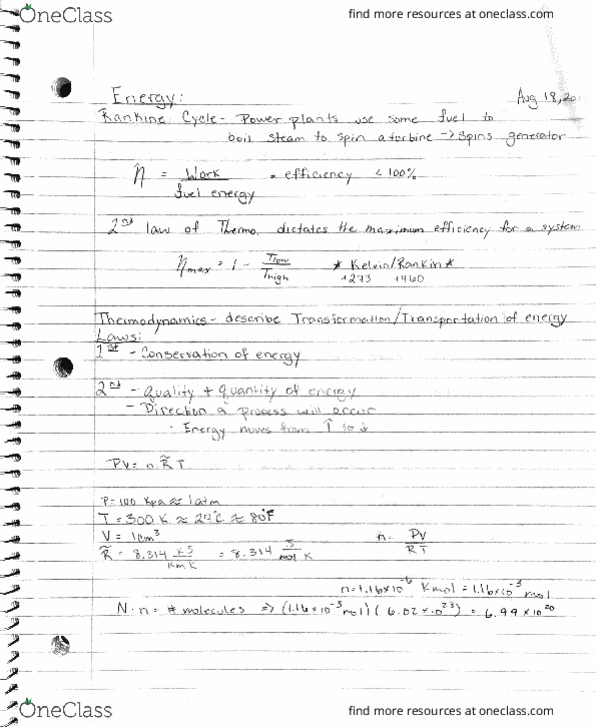 OneClass
find more resources at oneclass.com
Energy:
Aug 18, 20
Rankine Cycle - Power plants use some fuel to
boil steam to spin a turbine → Spins generator
η = Work / fuel energy = efficiency < 100%
2nd law of Thermo. dictates the maximum efficiency for a system
ηmax = 1 - Tlow / Thigh * Kelvin/Rankin *
+273 +460
Thermodynamics - describe Transformation/Transportation of energy
Laws:
1st - Conservation of energy
2nd - Quality + quantity of energy
- Direction a process will occur
· Energy moves from ↑ to ↓
PV = n R̃ T
P = 100 Kpa ≈ 1 atm
T = 300 K ≈ 27°C ≈ 80°F
V = 1 cm³
n = PV / R̃T
R̃ = 8.314 KJ / Kmol K = 8.314 J / mol K
n = 1.16 x 10⁻⁶ Kmol = 1.16 x 10⁻³ mol
N · n = # molecules ⇒ (1.16 x 10⁻³ mol) ( 6.02 x 10²³ ) = 6.99 x 10²⁰
OneClass
find more resources at oneclass.com